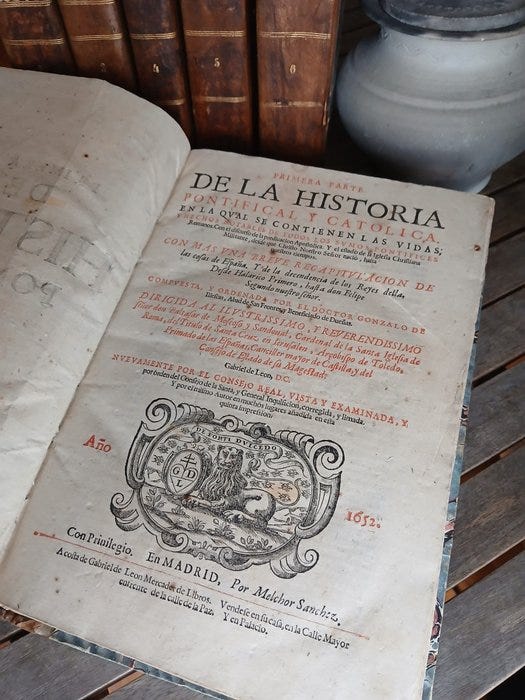 3
4
5
6
PRIMERA PARTE
DE LA HISTORIA
PONTIFICAL Y CATOLICA,
EN LA QVAL SE CONTIENEN LAS VIDAS,
Y HECHOS NOTABLES DE TODOS LOS SVMOS PONTIFICES
Romanos. Con el discurso de la predicacion Apostolica. Y el estado de la Iglesia Christiana
Militante, desde que Christo Nuestro Señor nació, hasta
nuestros tiempos.
CON MAS VNA BREVE RECAPITVLACION DE
las cosas de España. Y de la decendencia de los Reyes della,
Desde Halarico Primero, hasta don Felipe
Segundo nuestro señor.
COMPVESTA, Y ORDENADA POR EL DOCTOR GONZALO DE
Illescas, Abad de San Frontes, y Beneficiado de Dueñas.
DIRIGIDA AL ILVSTRISSIMO, Y REVERENDISSIMO
señor don Baltasar de Moscoso y Sandoual, Cardenal de la Santa Iglesia de
Roma, del Titulo de Santa Cruz, en Ierusalen, Arçobispo de Toledo,
Primado de las Españas, Canciller mayor de Castilla, y del
Consejo de Estado de su Magestad.
Gabriel de Leon, D.C.
NVEVAMENTE POR EL CONSEJO REAL, VISTA Y EXAMINADA, Y
por orden del Consejo de la Santa, y General Inquisicion, corregida, y limada.
Y por el mismo Autor en muchos lugares añadida en esta
quinta impression.
DE FORTI DVLCEDO
G D
L
Año
1652.
Con Privilegio. En MADRID, Por Melchor Sanchez.
A costa de Gabriel de Leon Mercader de Libros. Vendese en su casa, en la Calle Mayor
enfrente de la calle de la Paz. Y en Palacio.